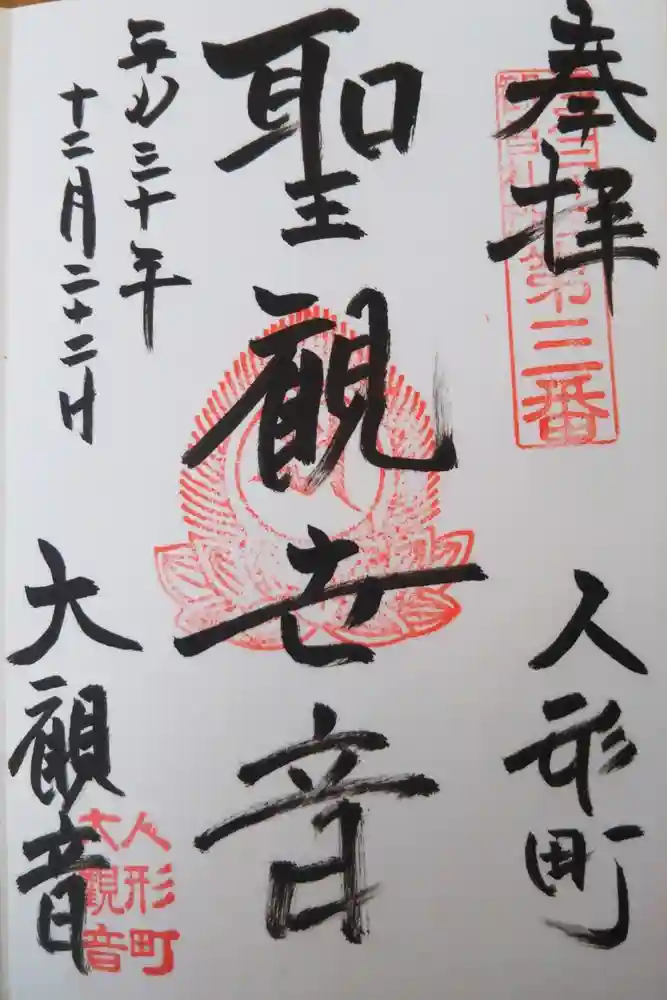 奉拝
人形町
聖観世音
平成三十年
十二月二十二日
大観音
第三番
人形町
大観音